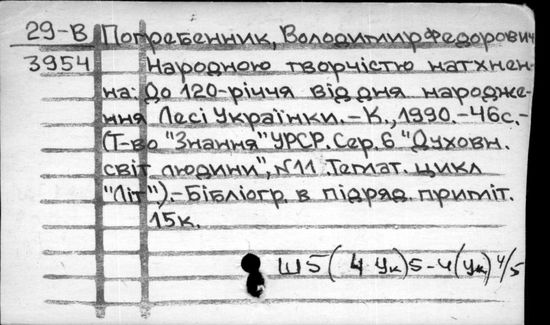 29-В Погребенник, Володимир Федорович
3954 Народною творчістю натхнен-
на: До 120-річчя від дня народже-
ння Лесі Українки.-К., 1990.-46с.-
(Т-во "Знання" УРСР. Сер. 6 "Духовн.
світ людини", N11. Темат. цикл
"Літ").-Бібліогр. в підряд. приміт.
15к.
Ш5(4Ук)5-4(Ук)4/5